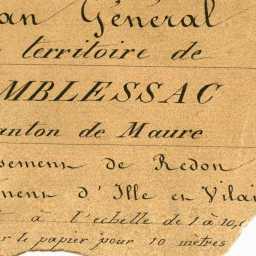 an Général
territoire de
MBLESSAC
anton de Maure
sement de Redon
ment d'Ille et Vilai
à l'echelle de 1 à 10,0
r le papier pour 10 mètres